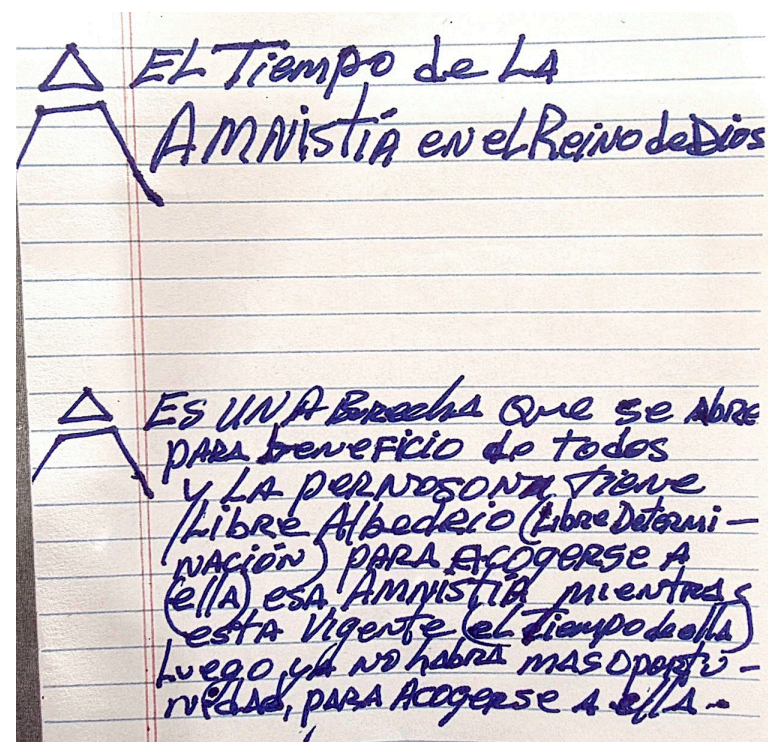 EL Tiempo de LA
AMNistíA en el Reino de Dios
ES UNA Brecha Que se Abre
PARA beneficio de todos
y LA persona tiene
Libre Albedrio (Libre Determi-
NACión) PARA Acogerse A
(ella) esa AMNISTÍA mientras
esta Vigente (el Tiempo de ella)
Luego, ya no habra mas oportu-
nidad, para Acogerse a ella.